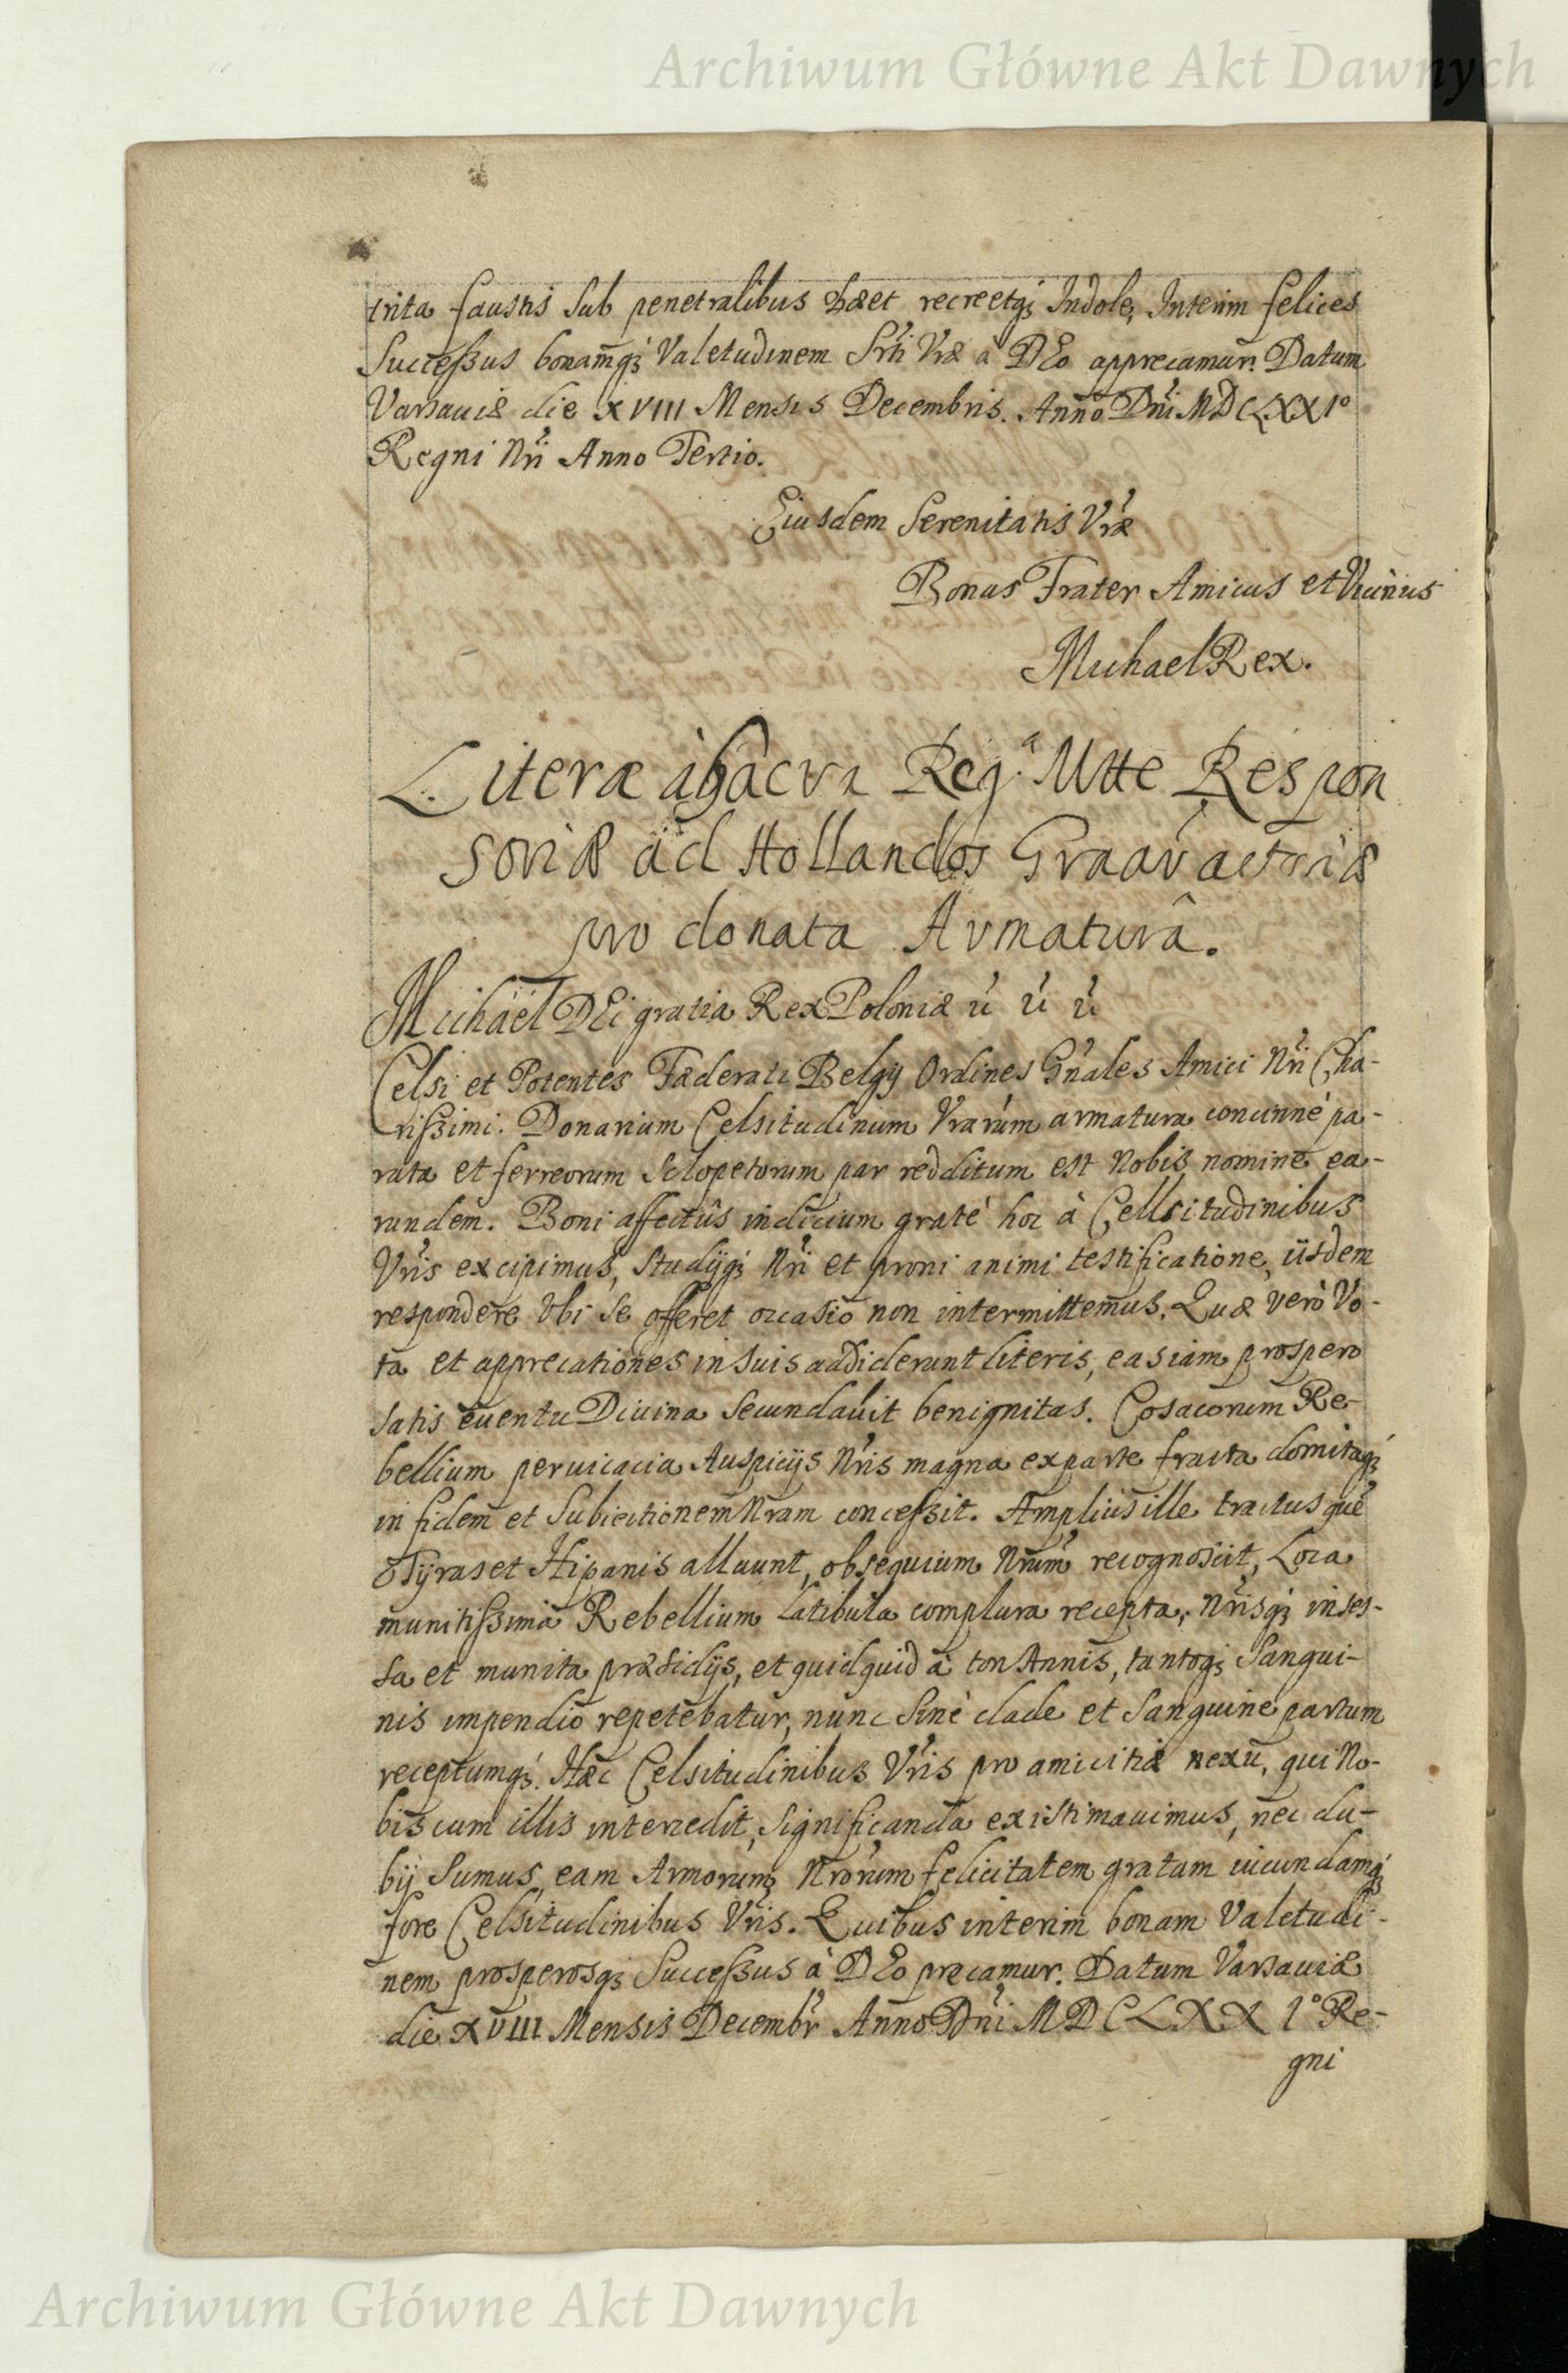 Archiwum Główne Akt Dawnych
trita faustis sub penetralibus hæret recreetq́ꝫ Indole, Interim felices
Successus bonamq́ꝫ Valetudinem Srti Vræ à DEo apprecamur. Datum
Varsauiæ die XVIII Mensis Decembris. Anno Dni MDCLXXIº
Regni Nri Anno Tertio.
Eiusdem Serenitatis Vræ
Bonus Frater Amicus et Vicinus
Michael Rex.
Literæ Regª Mtte Respon
soriæ ad Hollandos
pro donata Armaturâ.
Michaël DEi gratia Rex Poloniæ
Celsi et Potentes Fæderati Belgij Ordines Gñales Amici Nri Cha-
rissimi. Donarium Celsitudinum Vrarum armatura concinnè pa-
rata et ferreorum Sclopetorum par redditum est Nobis nomine ea-
rundem. Boni affectûs indicium gratè hoc à Cellsitudinibus
Vris excipimus, Studijq́ꝫ Nri et proni animi testificatione, iisdem
respondere Vbi se offeret occasio non intermittemus. Quæ verò Vo-
ta et apprecationes in suis addiderunt literis, eas iam prospero
satis euentu Diuina Secundauit benignitas. Cosacorum Re-
bellium peruicacia Auspicijs Nris magna ex parte fracta domitaq́ꝫ
in fidem et Subiectionem Nram concessit. Amplius ille tractus què
Tyras et Hipanis alluunt, obsequium Nrum recognoscit, Loca
munitissima Rebellium Latibula complura recepta, Nrisq́ꝫ inses-
sa et munita præsidijs, et quidquid à tot Annis, tantoq́ꝫ Sangui-
nis impendio repetebatur, nunc Sine clade et Sanguine partum
receptumq́ꝫ. Hæc Celsitudinibus Vris pro amicitiæ nexu, qui No-
bis cum illis intercedit, significanda existimauimus, nec du-
bij Sumus, eam Armorum Nrorum felicitatem gratam iucundamq́ꝫ
fore Celsitudinibus Vris. Quibus interim bonam Valetudi-
nem prosperosq́ꝫ Successus à DEo precamur. Datum Varsauiæ
die XVIII Mensis Decembr Anno Dni MDCLXX Iº Re-
gni
Archiwum Główne Akt Dawnych